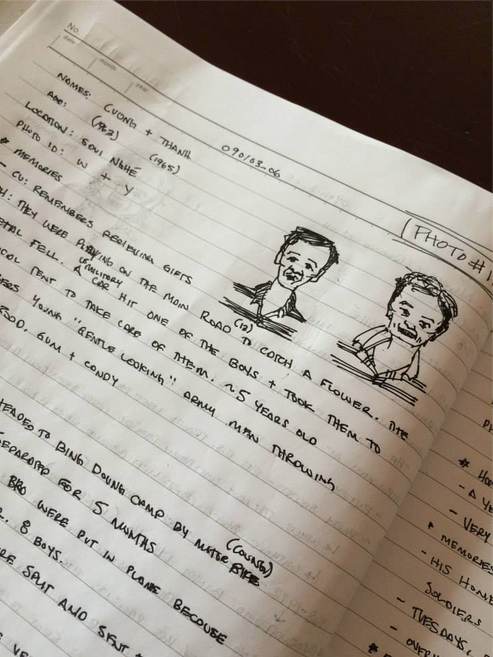 No
date month year
NAMES: CUONG + THANH
AGE: (1962) (1965)
090103-06
LOCATION: SOUI NGHE
PHOTO ID: W + Y
PHOTO #1
* MEMORIES
- CU: REMEMBERS RECEIVING GIFTS
TH: THEY WERE PLAYING ON THE MAIN ROAD (12) TO CATCH A FLOWER. THE
FELL. US MILITARY CAR HIT ONE OF THE BOYS + TOOK THEM TO
TENT TO TAKE CARE OF THEM. ~5 YEARS OLD
YOUNG "GENTLE LOOKING" ARMY MAN THROWING
FOOD, GUM + CANDY
TO BING DOUNG CAMP BY MOTOR BIKE (COUNTY)
FOR 5 MONTHS
BRO WERE PUT IN PLANE BECAUSE
8 BOYS.
SPLIT AND SENT
*
- A
- VERY
* MEMORIES
- HIS HOME
SOLDIERS
- TUESDAYS,